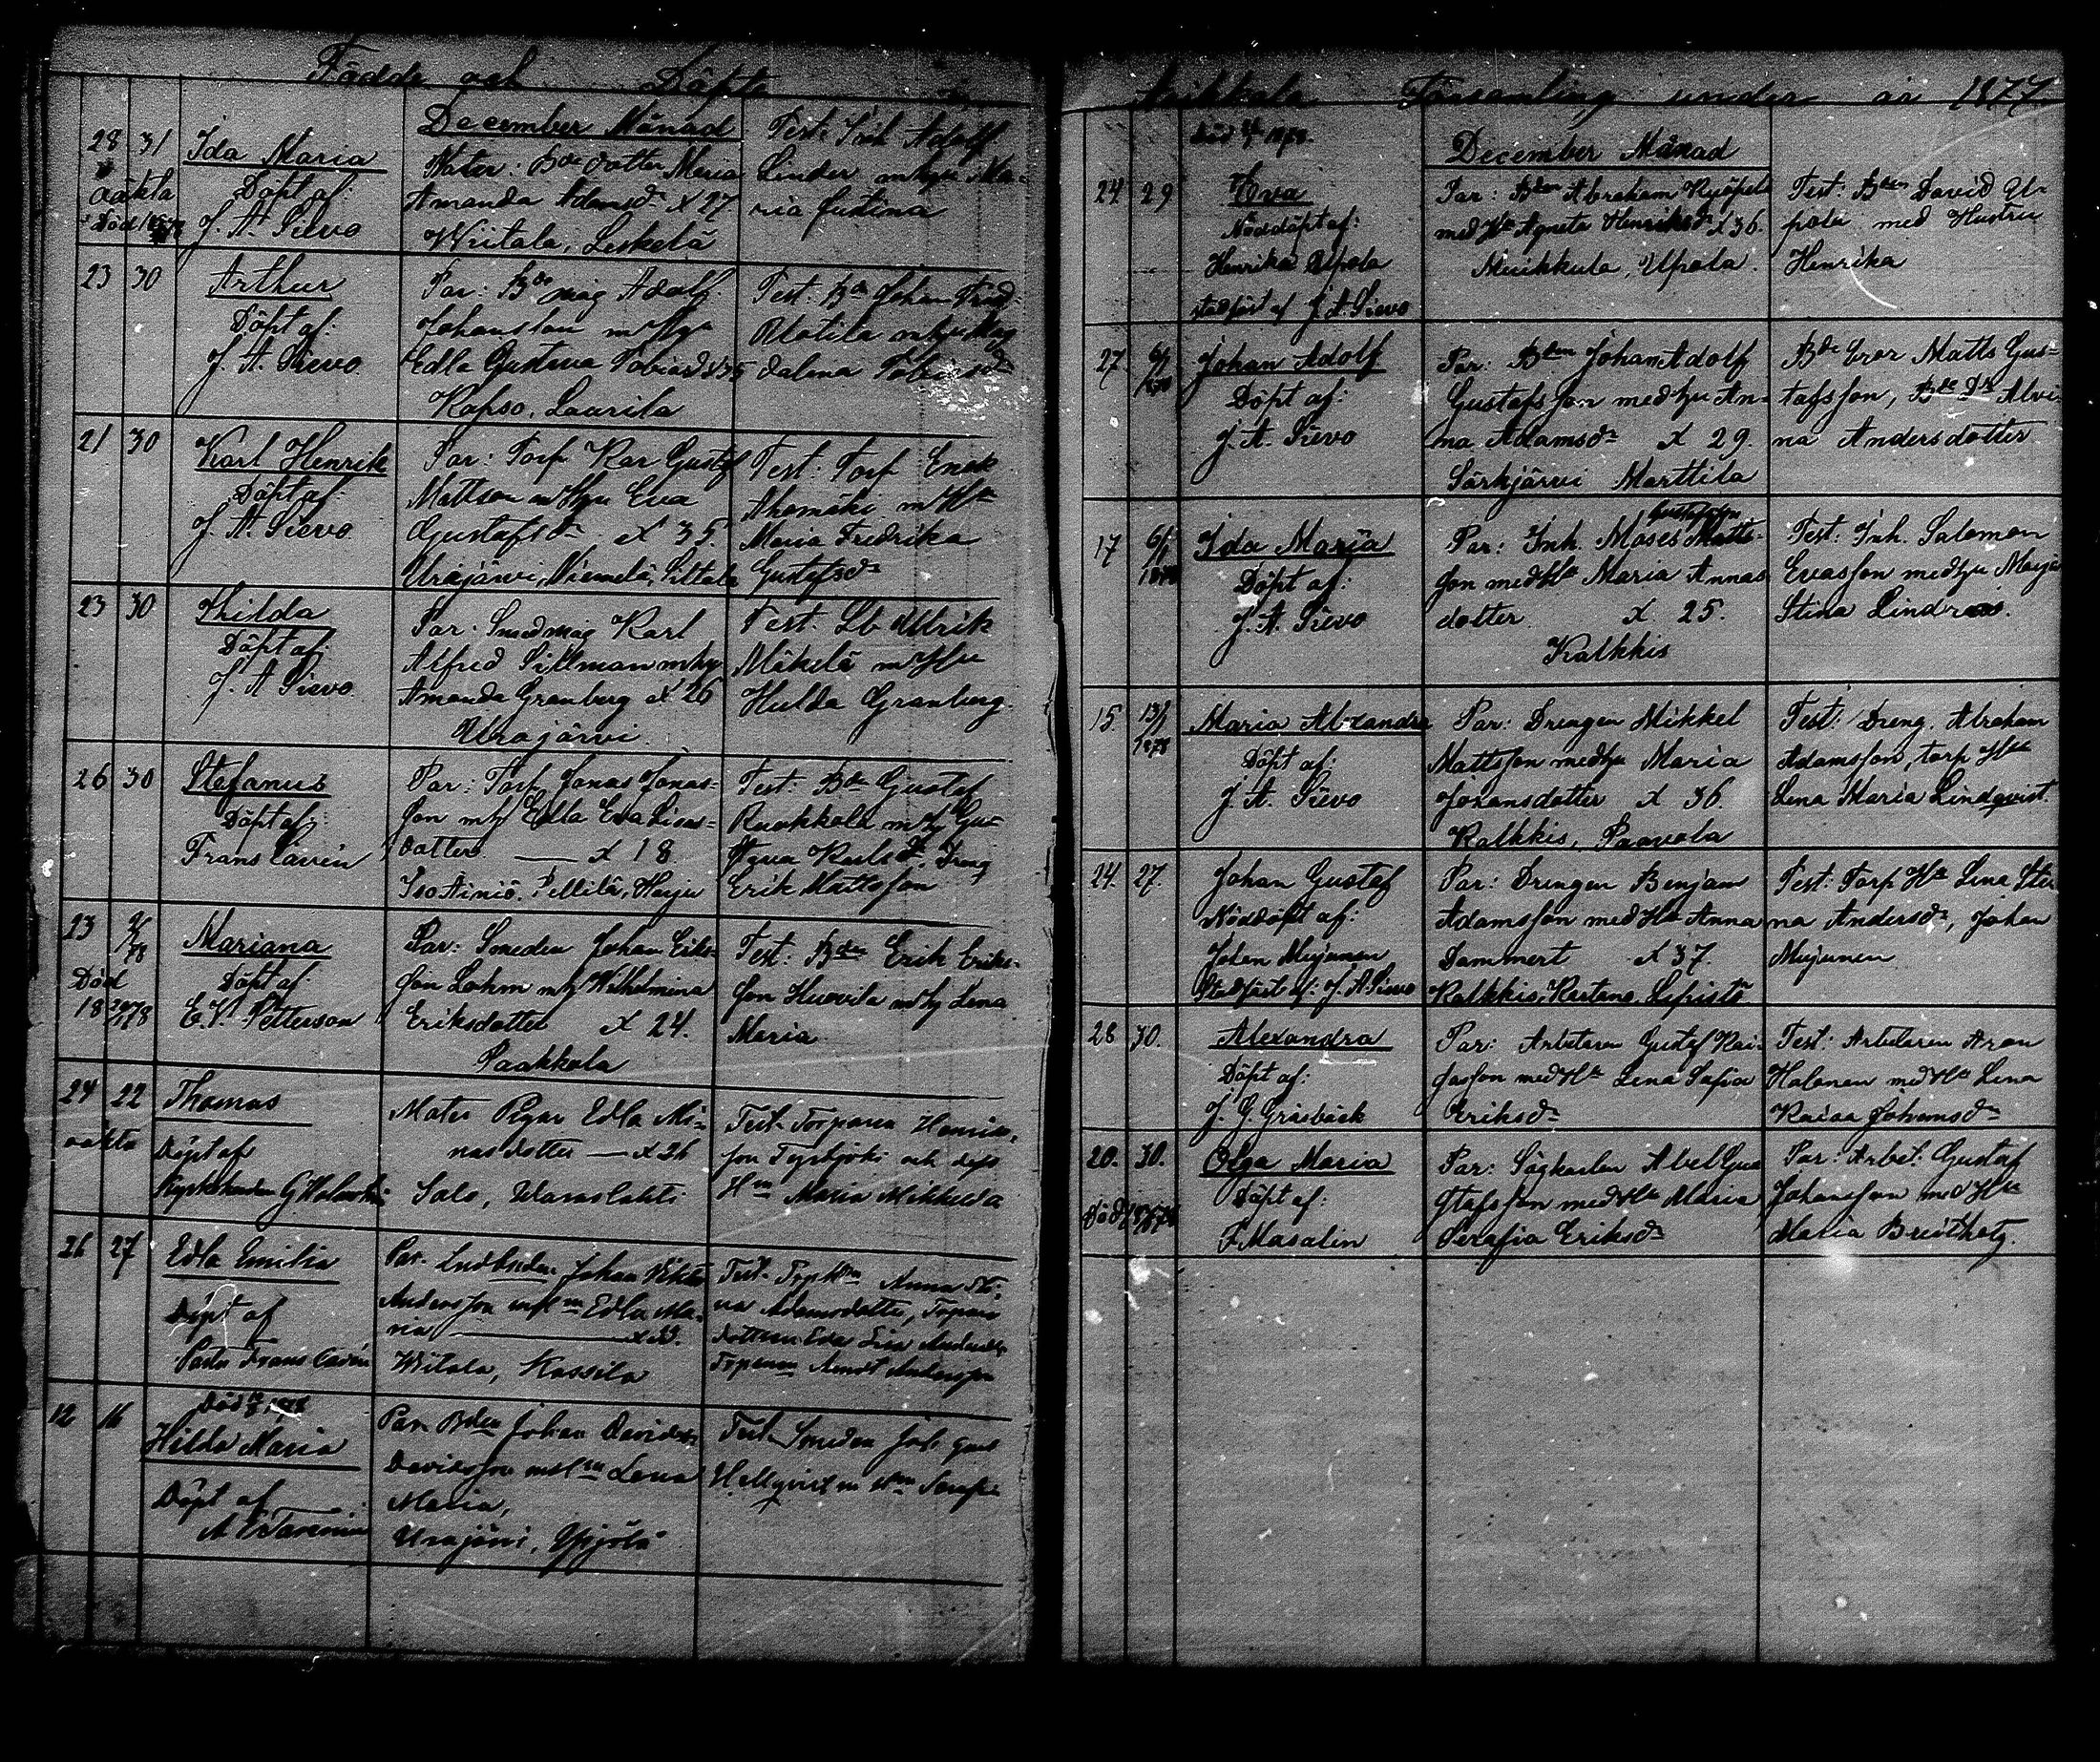 Födde och Döpte i
December Månad
28 31 Ida Maria
oäkta Döpt af:
Död J. A. Sievo
Mater: Bde dotter Maria
Amanda Adamsdr x 27
Wiitala, Leskelä
Test: Inh Adolf
Linder m hu Ma-
ria Justina
23 30 Arthur
Döpt af:
J. A. Sievo
Par: Bde måg Adolf
Johansson m Hu
Edla Gustava Tobiasd x 35
Kopso, Laurila
Test: Bd Johan Fred
Ulotila m hu Mag
dalena Tobiasdr
21 30 Karl Henrik
Döpt af:
J. A. Sievo
Par: Torp Kar Gustaf
Mattson m Hu Eva
Gustafsdr x 35.
Urajärvi, Niemelä, Siltala
Test: Torp Enok
Ahomäki m Hu
Maria Fredrika
Gustafsdr
23 30 Hilda
Döpt af:
J. A Sievo
Par: Smed måg Karl
Alfred Sillman m hu
Amanda Granberg x 26
Urajärvi
Test: Lb Ulrik
Mäkelä m Hu
Hulda Granberg
26 30 Stefanus
Döpt af:
Frans Cavén
Par: Torp Jonas Jonas-
son m h Edla Eva Lisas-
dotter — x 18
Iso Äiniö, Pellilä, Harju
Test: Bde Gustaf
Ruokkola m h Gu-
stava Karlsd, Dreng
Erik Mattsson
23 78 Mariana
Död Döpt af
18 78 E. V. Petterson
Par: Smeden Johan Eriks-
son Lohm m h Wilhelmina
Eriksdotter x 24.
Paakkola
Test: Bden Erik Eriks-
son Huovila m h Lena
Maria
24 22 Thomas
oäkta Döpt af
Kyrkoherden G Molander
Mater Pigan Edla Mi-
nas dotter — x 26
Salo,
Test. Torparen Henriks-
son och dess
Hm Maria Mikkelsd
26 27 Edla Emilia
Döpt af
Pastor Frans Cavén
Par. Johan Viktor
Andersson m Hm Edla Ma-
ria
Witala, Kassila
Test. Torp Hm Anna Sti-
na Adamsdotter, Torpare
dottern Eva Lisa Andersdr
Torparen Andersson
Död 1878
12 16 Hilda Maria
Döpt af
Par. Bden Johan David
Davidsson m Hm Lena
Maria,
Urajärvi, Yljölä
Test. Smeden Joh. Gust
Hellqvist m Hm
Asikkala Församling under år 1877
December Månad
Död 1878.
24 29 Eva
Nöddöpt af:
Henrika Upola
stadfäst af J. A. Sievo
Par: Bden Abraham
med Hu Agneta Henriksdr x 36.
Muikkula, Upola.
Test: Bden David U-
pola med Hustru
Henrika
27. 6/1 1878 Johan Adolf
Döpt af:
J. A. Sievo
Par: Bden Johan Adolf
Gustafsson med hu An-
na Adamsdr x 29.
Särkjärvi Marttila
Bde bror Matts Gus-
tafsson, Bde Dr Alvi-
na Andersdotter
17 6/1 1878 Ida Maria
Döpt af:
J. A. Sievo
Gustafsson
Par: Inh. Moses Matts-
son med Hu Maria Annas
dotter x 25.
Kalkkis
Test: Inh. Salomon
Evasson med hu Maja
Stina Lindroos.
15. 13/1 1878 Maria Alexandra
Döpt af:
J. A. Sievo
Par: Drengen Mikkel
Mattsson med hu Maria
Johansdotter x 36.
Kalkkis, Paavola
Test: Dreng. Abraham
Adamsson, torp Hu
Lena Maria Lindqvist.
24. 27. Johan Gustaf
Nöddöpt af:
Johan Mujunen
Stadfäst af: J. A Sievo
Par: Drengen Benjam
Adamsson med Hu Anna
Dammert x 37.
Kalkkis, Kertano, Lepistö
Test: Torp Hu Lena Sti
na Andersdr, Johan
Mujunen
28 30. Alexandra
Döpt af:
J. G. Gråsbäck
Par: Arbetaren Gustaf Kai-
sasson med Hu Lena Sofia
Eriksdr
Test: Arbetaren Aron
Halonen med Hu Lena
Kaisa Johansdr
20. 30. Olga Maria
Död Döpt af:
F. Masalin
Par: Sågkarlen Abel Gus
stafsson med Hu Maria
Serafia Eriksdr
Par: Arbet. Gustaf
Johansson med Hu
Maria Breitholtz.